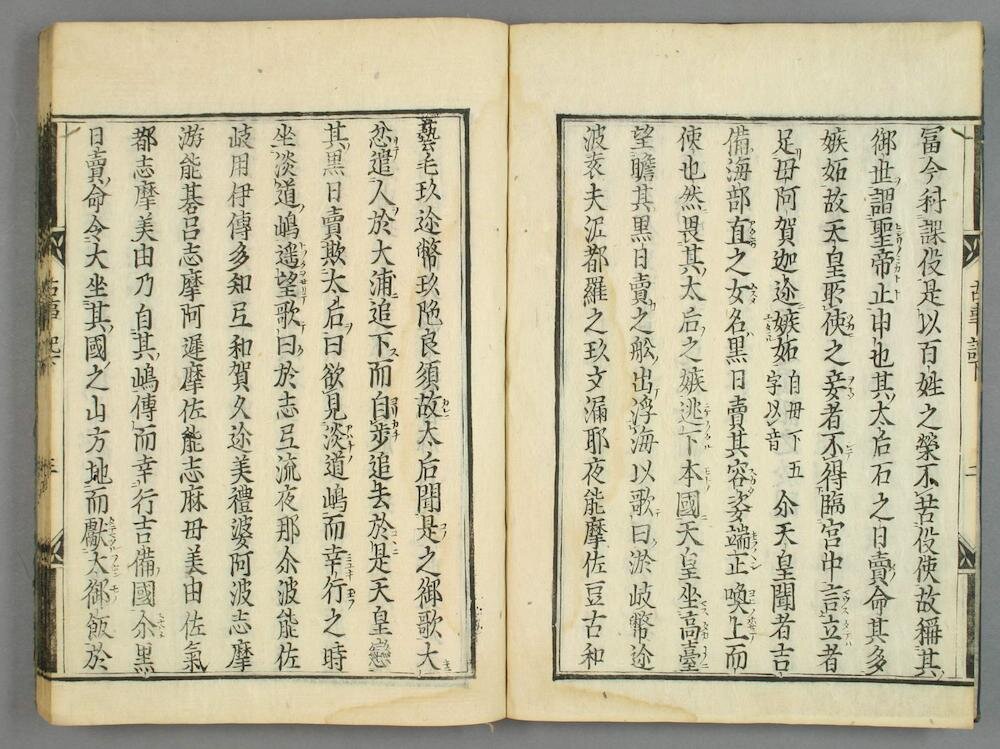 古事記下 二
冨今科課伇是以百姓之榮不苦伇使故稱其
御世謂聖帝止申也其太后石之日賣命其多
嫉妬故天皇所使之妾者不得臨宮中言立者
足毋阿賀迦迩嫉妬自毋下五字以音尒天皇聞者吉
備海部直之女名黒日賣其容姿端正喚上而
使也然畏其太后之嫉逃下本國天皇坐高臺
望瞻其黒日賣之舩出浮海以歌曰淤岐幣迩
波袁夫泥都羅之玖文漏耶夜能摩佐豆古和
藝毛玖迩幣玖陁良須故太后聞是之御歌大
忿遣人於大浦追下而自歩追去於是天皇戀
其黒日賣欺太后曰欲見淡道嶋而幸行之時
坐淡道嶋遥望歌曰於志弖流夜那尒波能佐
岐用伊傳多知弖和賀久迩美禮婆阿波志摩
游能碁呂志摩阿遲摩佐能志麻毋美由佐氣
都志摩美由乃自其嶋傳而幸行吉備國尒黒
日賣命令大坐其國之山方地而獻太御飯於
古事記下 三